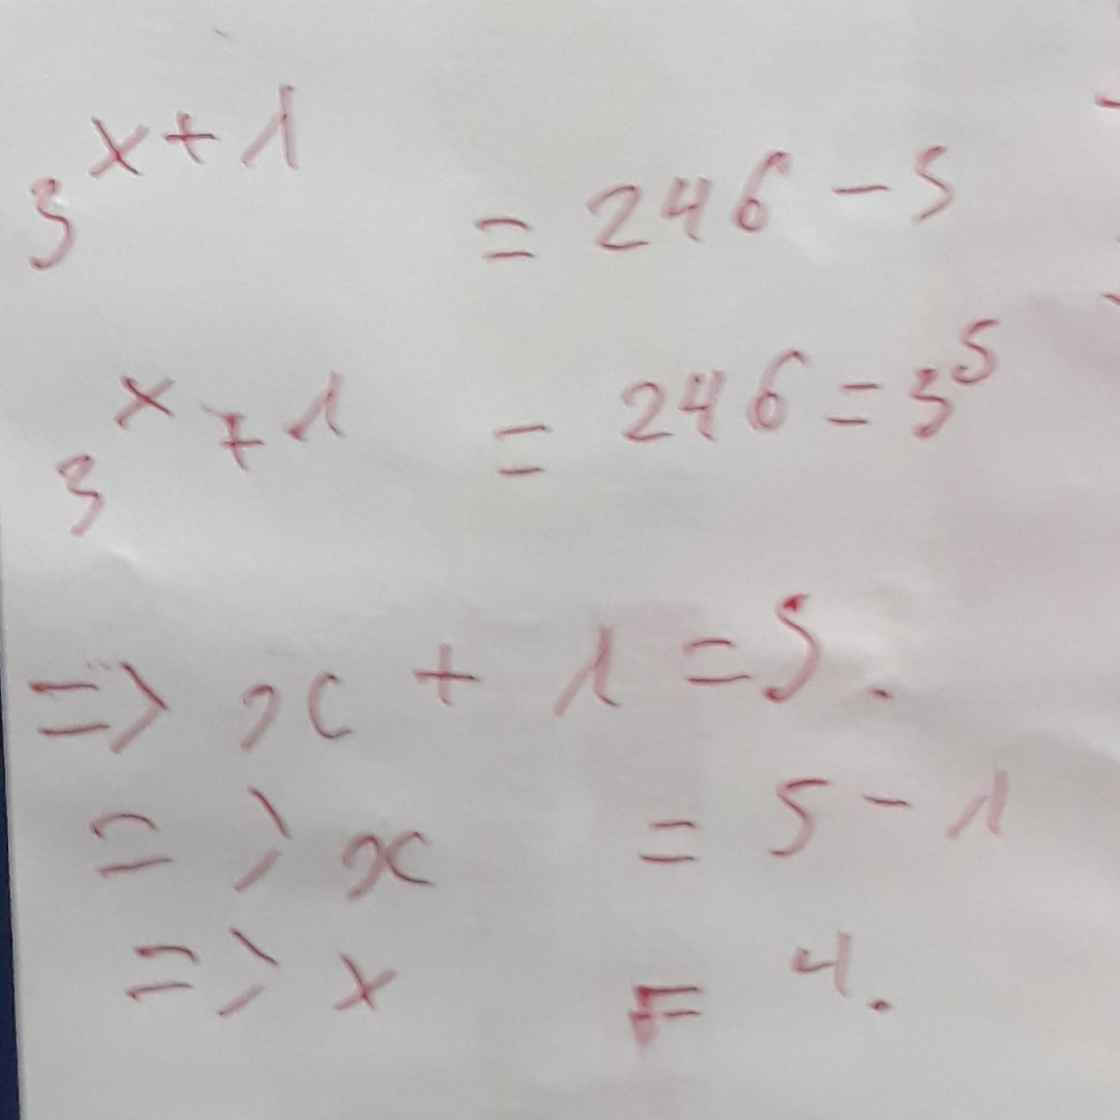 3^{x+1} = 246 - 5
3^{x+1} = 246 = 3^5
=> x + 1 = 5.
=> x = 5 - 1
=> x = 4.